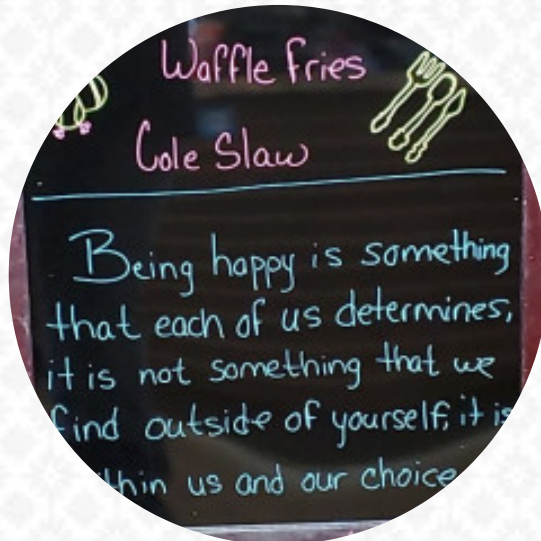 Waffle Fries
Cole Slaw
Being happy is something
that each of us determines,
it is not something that we
find outside of yourself, it is
us and our choice